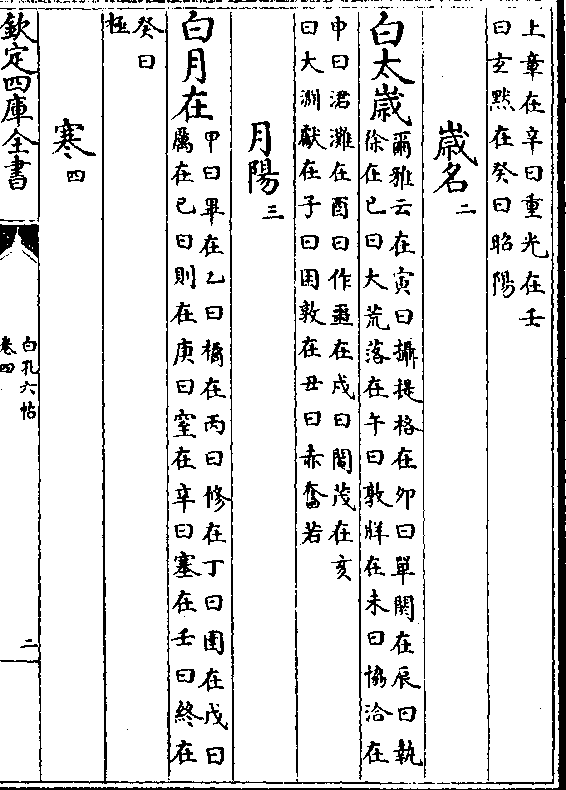 上章在辛曰重光在壬
曰玄黓在癸曰昭陽
歲名二
白太歲
爾雅云在寅曰攝提格在卯曰單閼在辰曰執
徐在巳曰大荒落在午曰敦牂在未曰協洽在
申曰涒灘在酉曰作噩在戌曰閹茂在亥
曰大淵獻在子曰困敦在丑曰赤奮若
月陽三
白月在
甲曰畢在乙曰橘在丙曰修在丁曰圉在戊曰
厲在己曰則在庚曰窒在辛曰塞在壬曰終在
癸曰
極
寒四
欽定四庫全書
白孔六帖
卷四
二